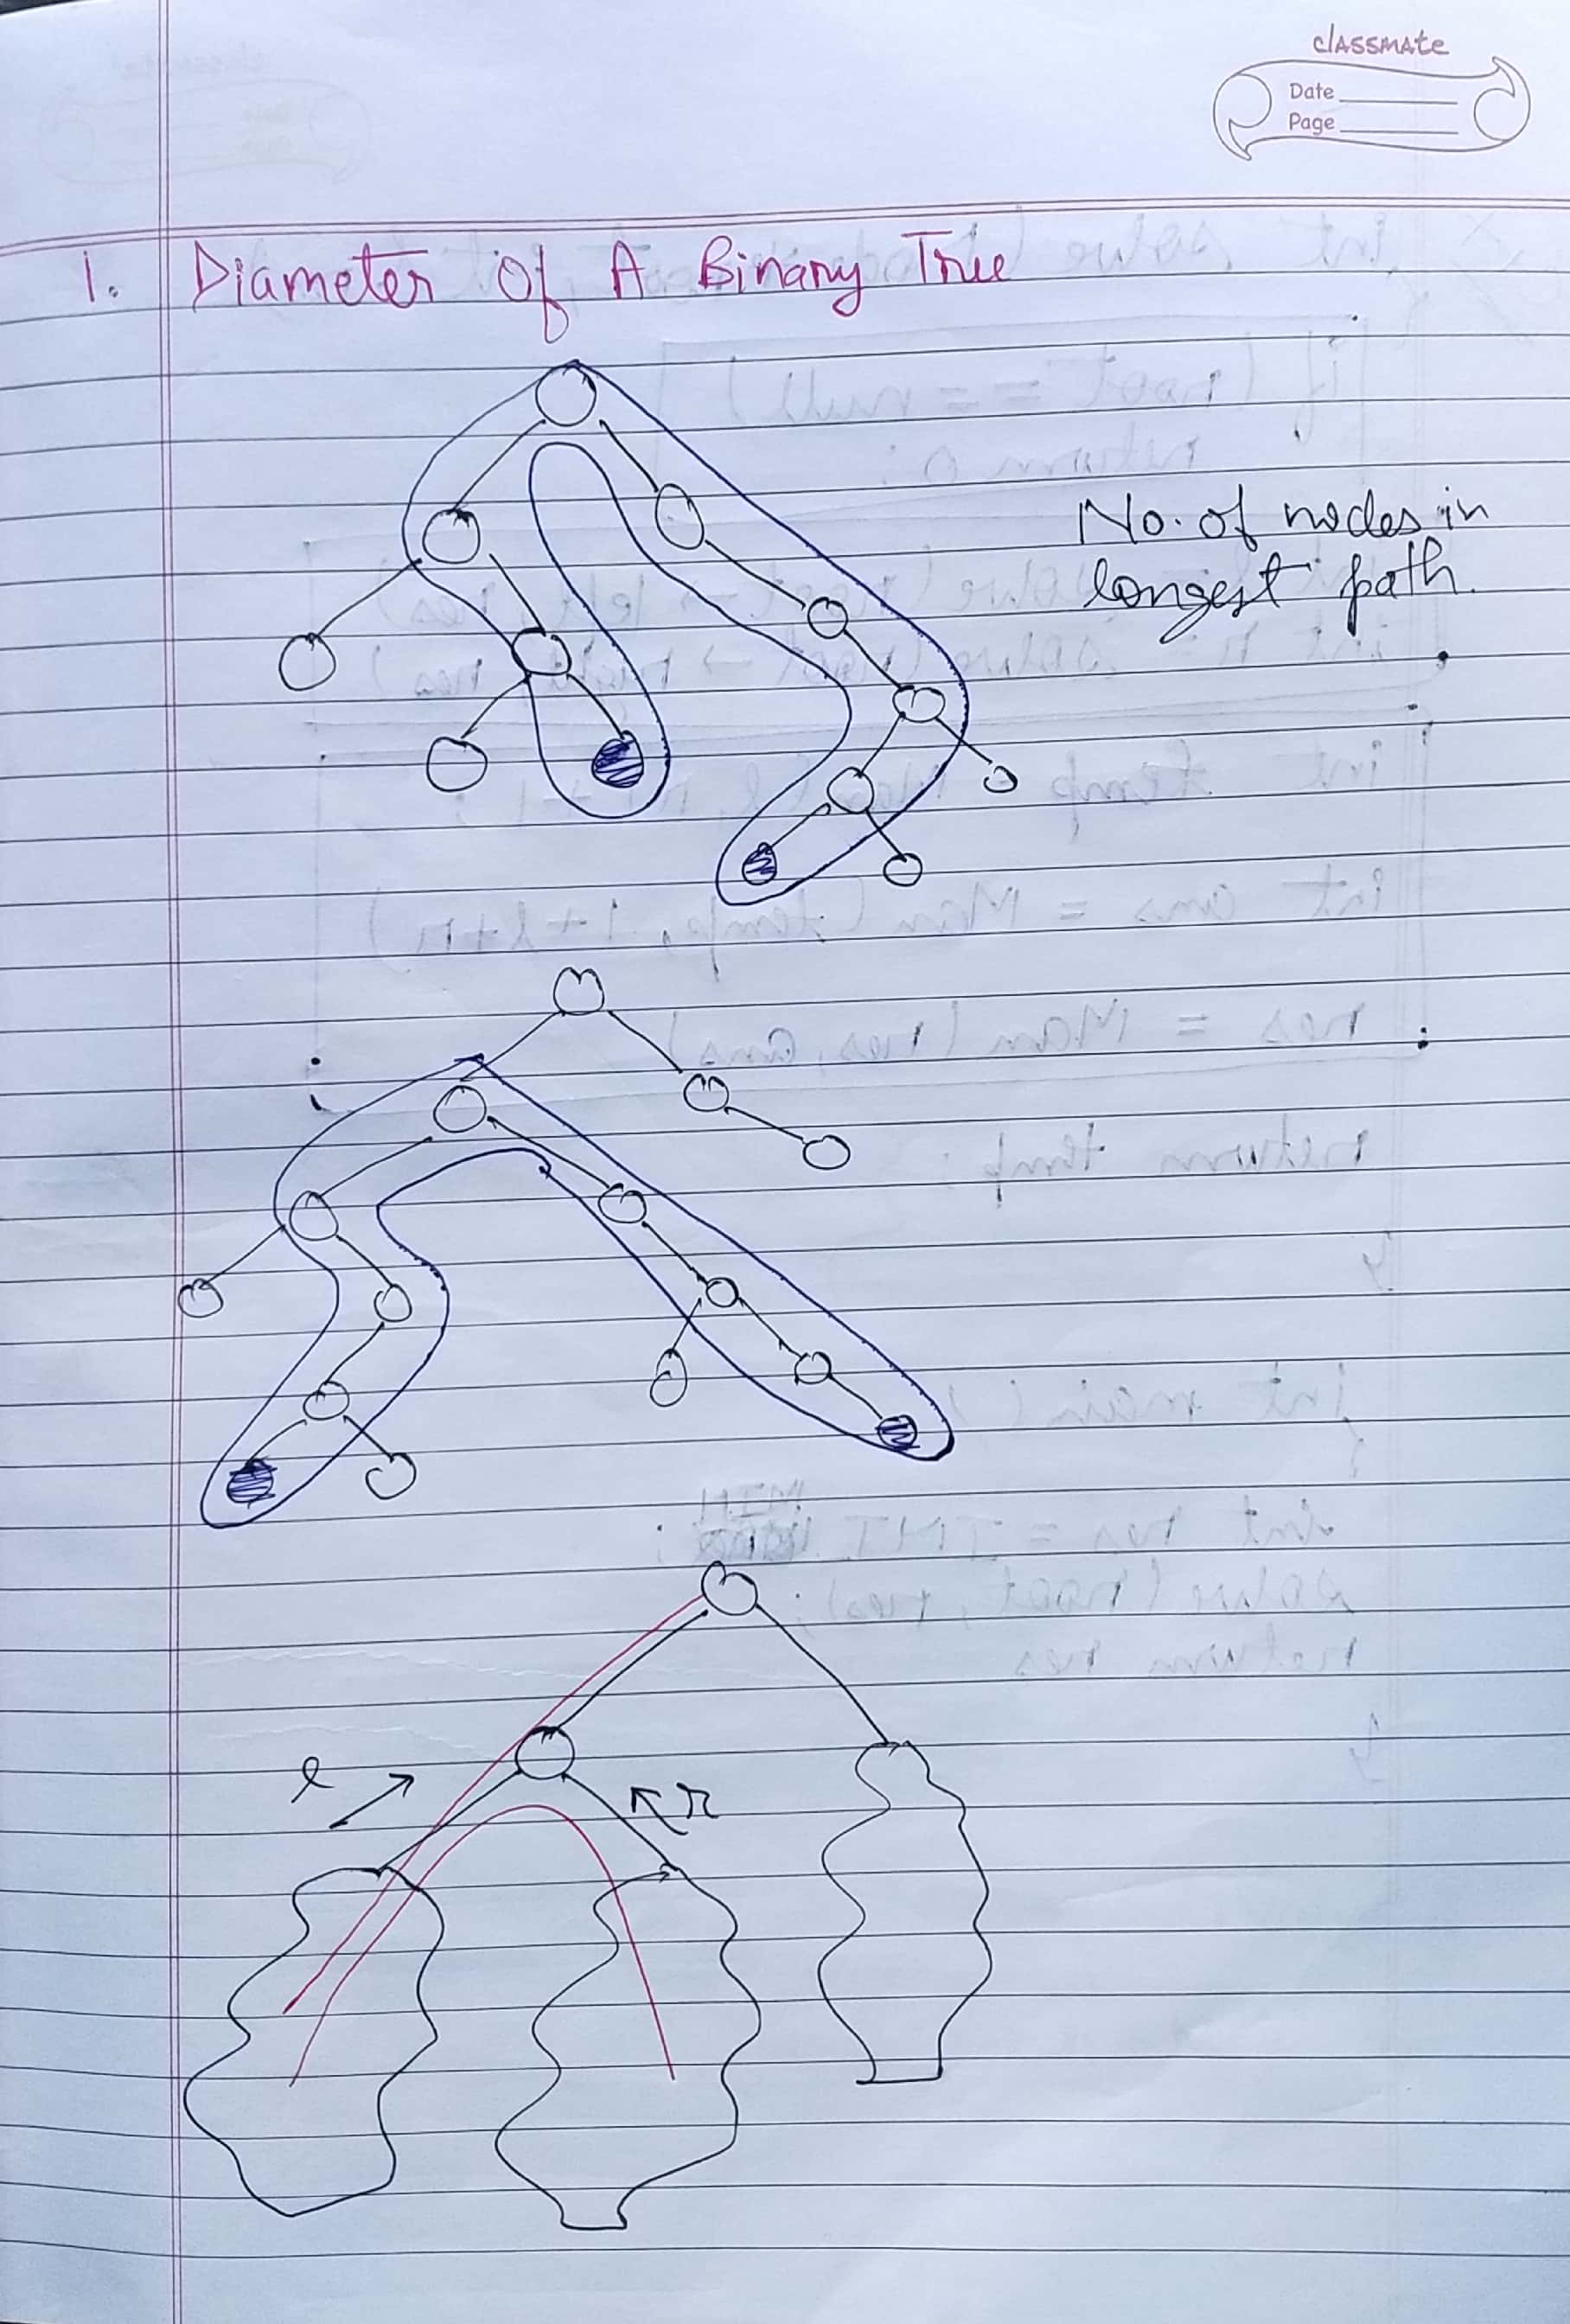 classmate
Date
Page
1. Diameter Of A Binary Tree
No. of nodes in
longest path.
l
r